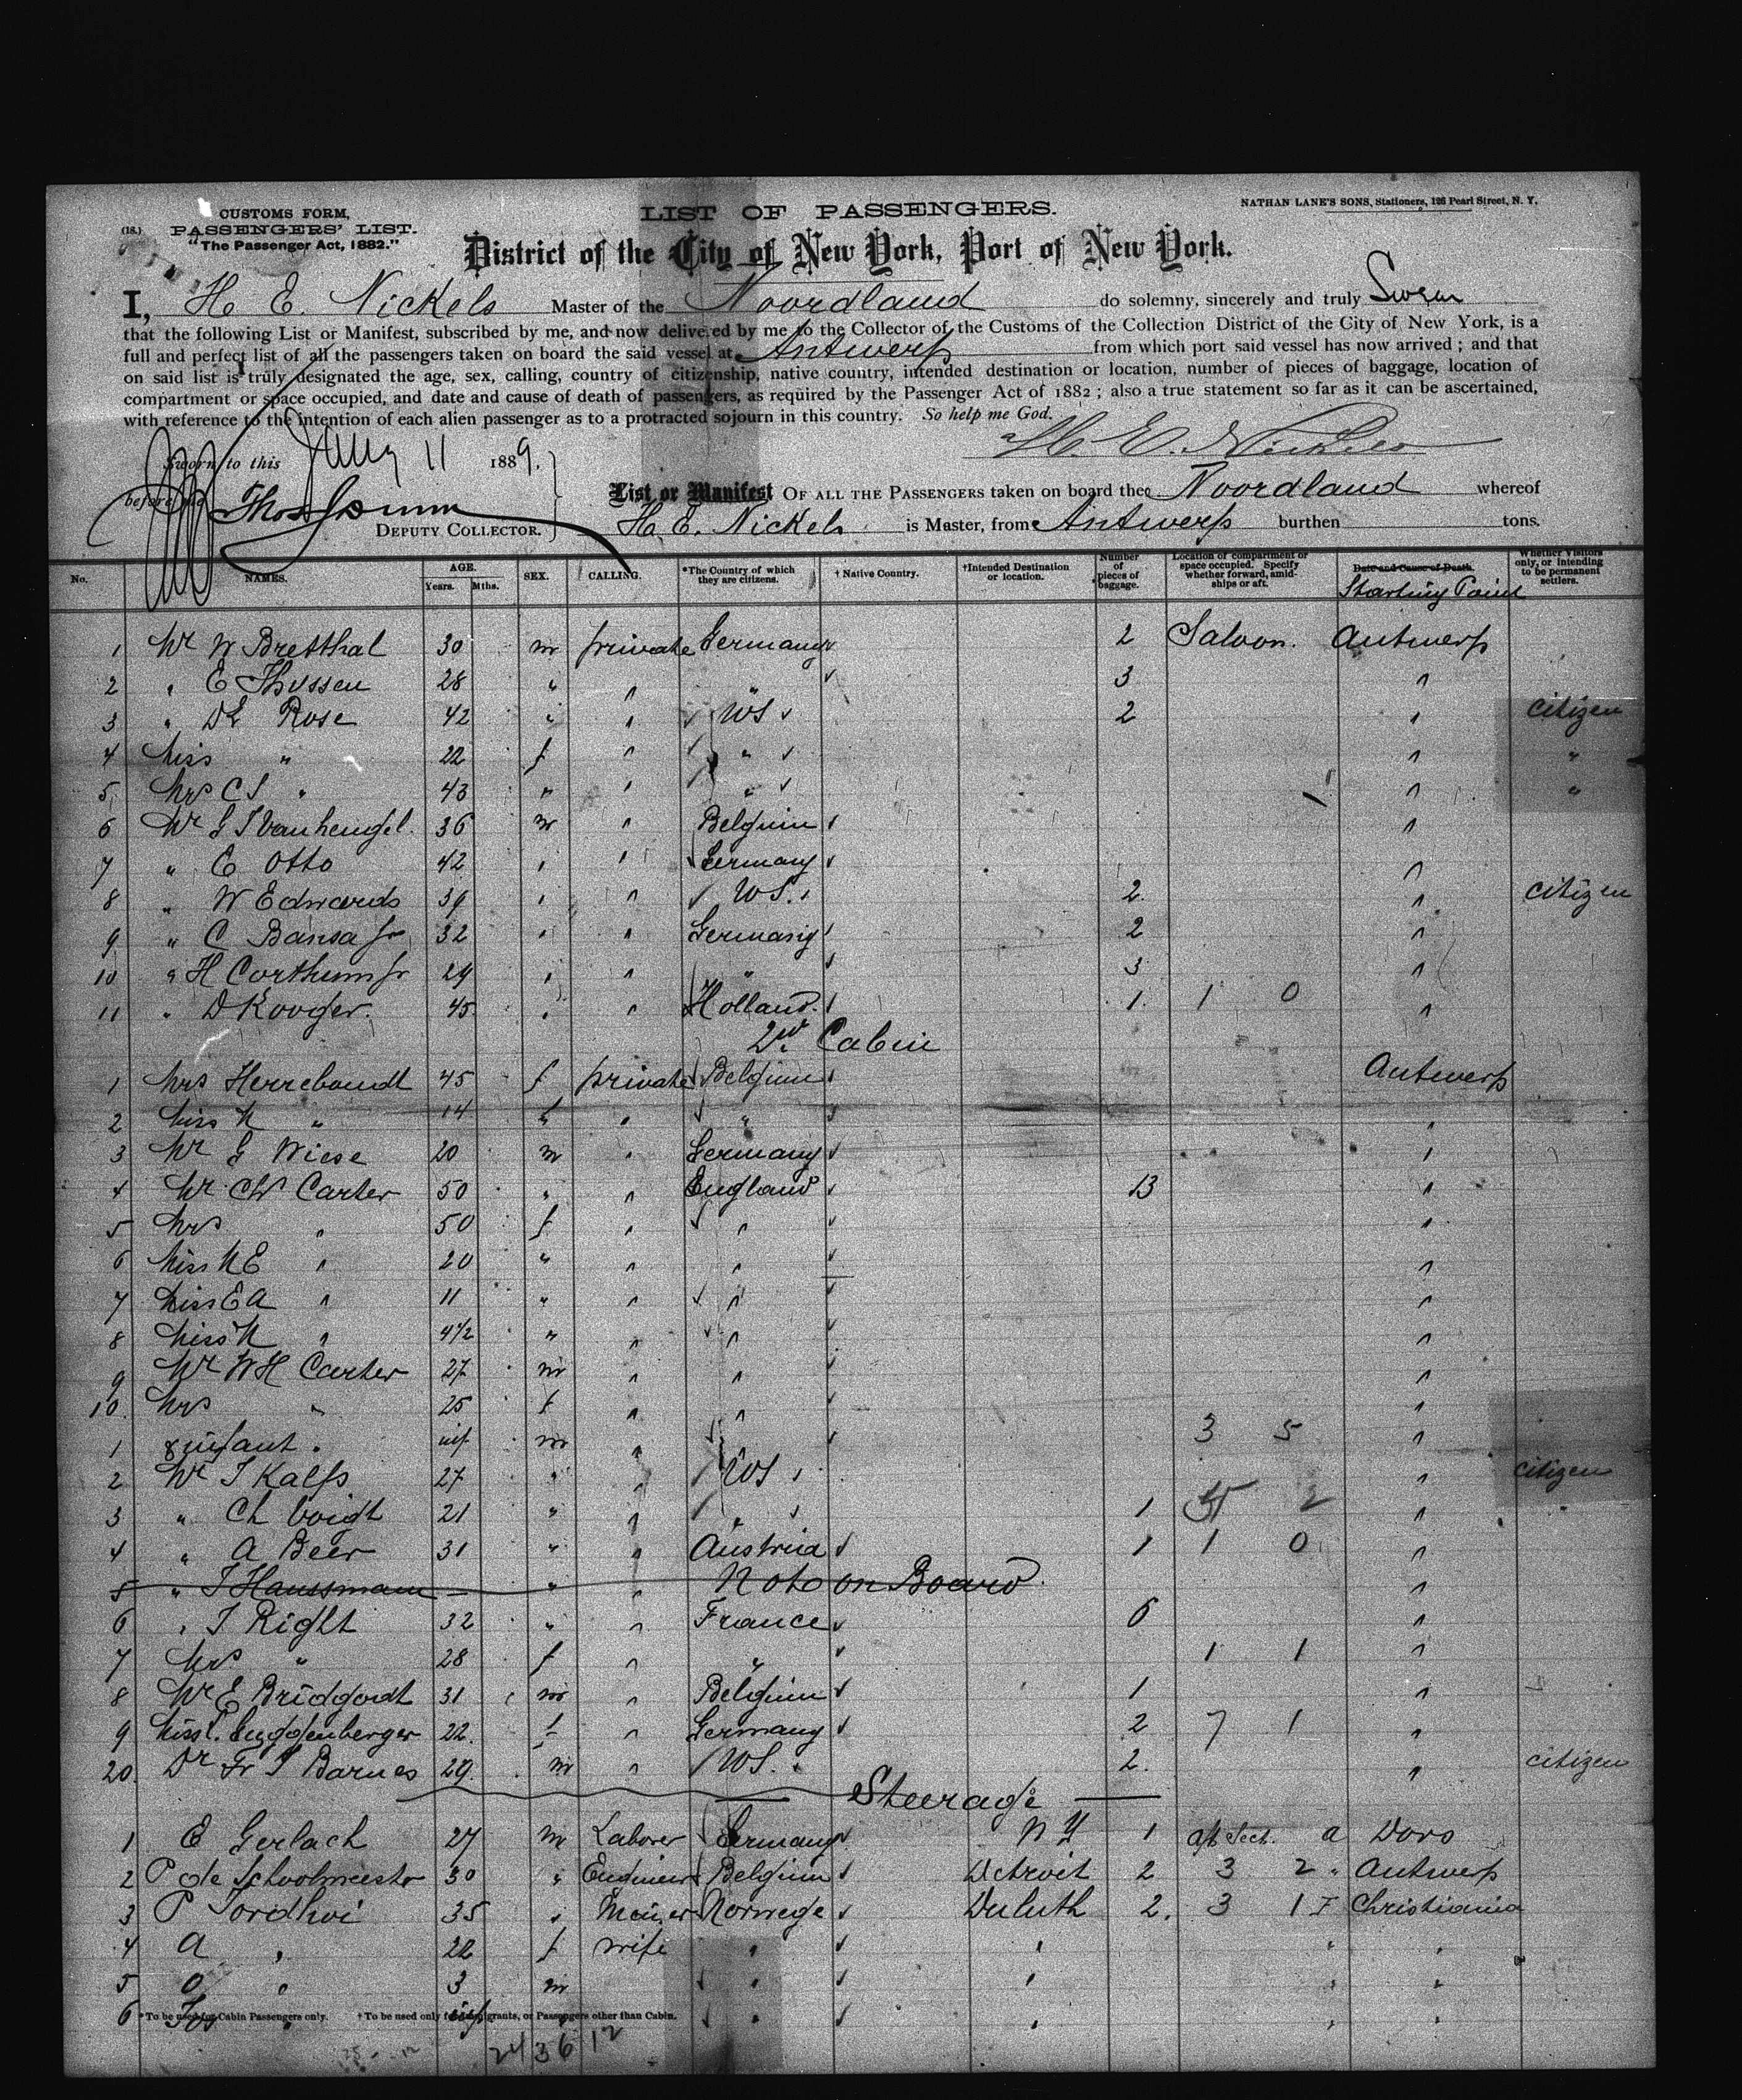 CUSTOMS FORM,
(18.) PASSENGERS' LIST.
"The Passenger Act, 1882."
LIST OF PASSENGERS.
NATHAN LANE'S SONS, Stationers, 126 Pearl Street, N. Y.
District of the City of New York, Port of New York.
I, H. E. Nickels Master of the Noordland do solemny, sincerely and truly Swear
that the following List or Manifest, subscribed by me, and now delivered by me to the Collector of the Customs of the Collection District of the City of New York, is a
full and perfect list of all the passengers taken on board the said vessel at Antwerp from which port said vessel has now arrived ; and that
on said list is truly designated the age, sex, calling, country of citizenship, native country, intended destination or location, number of pieces of baggage, location of
compartment or space occupied, and date and cause of death of passengers, as required by the Passenger Act of 1882 ; also a true statement so far as it can be ascertained,
with reference to the intention of each alien passenger as to a protracted sojourn in this country. So help me God.
H. E. Nickels
Sworn to this 11 1889.
before me
DEPUTY COLLECTOR.
List or Manifest OF ALL THE PASSENGERS taken on board the Noordland whereof
H. E. Nickels is Master, from Antwerp burthen tons.
No. NAMES. AGE. Years. Mths. SEX. CALLING. *The Country of which they are citizens. † Native Country. †Intended Destination or location. Number of pieces of baggage. Location of compartment or space occupied. Specify whether forward, amidships or aft. Date and Cause of Death. Starting Point Whether Visitors only, or intending to be permanent settlers.
1 Mr W Bretthal 30 m private Germany 2 Saloon. Antwerp
2 " E Thyssen 28 " " " 3 "
3 " Rose 42 " " US 2 " citizen
4 Miss " 22 f " " " "
5 Mrs C S " 43 " " " " "
6 Mr 36 m " Belgium "
7 " C Otto 42 " " Germany "
8 " W Edwards 39 " " US. 2 " citizen
9 " C Bansa Jr 32 " " Germany 2 "
10 " H 29 " " " 3 "
11 " D Kooger. 45 " " Holland. 1. 1 0 "
2nd Cabin
1 Mrs Herreboudt 45 f private Belgium Antwerp
2 Miss M " 14 " " " "
3 Mr G Wiese 20 m " Germany "
4 Mr CW Carter 50 " " England 13 "
5 Mrs " 50 f " " "
6 Miss M E " 20 " " " "
7 Miss E A " 11 " " " "
8 Miss M " 4 1/2 " " " "
9 Mr W H Carter 27 m " " "
10 Mrs " 25 f " " "
1 & infant " inf m " 3 5 "
2 Mr 27 " " US " citizen
3 " Ch Voigt 21 " " " 1 2 " "
4 " A Beer 31 " " Austria 1 1 0 "
5 " J Haussmann — " " Not on Board "
6 " J Right 32 " " France 6 "
7 Mrs " 28 f " " 1 1 "
8 Mr E 31 m " Belgium 1 "
9 Miss 22. f " Germany 2 7 1 "
20 Dr Barnes 29. m " US. 2. " citizen
Steerage
1 E Gerlach 27 m Laborer Germany N Y 1 aft Sect. a
2 P de Schoolmeester 30 " Engineer Belgium Detroit 2 3 2 " Antwerp
3 P 35 " Norwege Duluth 2. 3 1 F Christiania
4 A " 22 f wife " " " "
5 O " 3 m " " " "
6 " inf " " " "
*To be used for Cabin Passengers only. †To be used only for Emigrants, or Passengers other than Cabin.
24 36 12